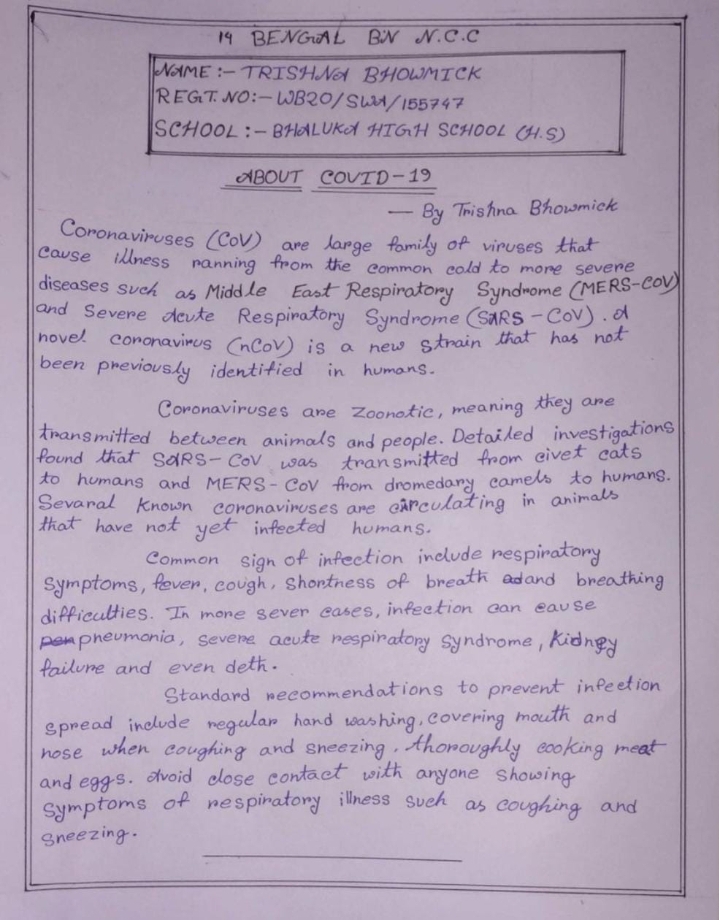 19 BENGAL BN N.C.C
NAME :- TRISHNA BHOWMICK
REGT. NO:- WB20/SWA/155747
SCHOOL :- BHALUKA HIGH SCHOOL (H.S)
ABOUT COVID-19
— By Trishna Bhowmick
Coronaviruses (CoV) are large family of viruses that
cause illness ranning from the common cold to more severe
diseases such as Middle East Respiratory Syndrome (MERS-COV)
and Severe Acute Respiratory Syndrome (SARS-CoV). A
novel coronavirus (nCoV) is a new strain that has not
been previously identified in humans.
Coronaviruses are zoonotic, meaning they are
transmitted between animals and people. Detailed investigations
found that SARS-CoV was transmitted from civet cats
to humans and MERS-CoV from dromedary camels to humans.
Sevaral known coronaviruses are circulating in animals
that have not yet infected humans.
Common sign of infection include respiratory
symptoms, fever, cough, shortness of breath and breathing
difficulties. In more sever cases, infection can cause
pneumonia, severe acute respiratory syndrome, kidney
failure and even deth.
Standard recommendations to prevent infection
spread include regular hand washing, covering mouth and
nose when coughing and sneezing, thoroughly cooking meat
and eggs. Avoid close contact with anyone showing
symptoms of respiratory illness such as coughing and
sneezing.